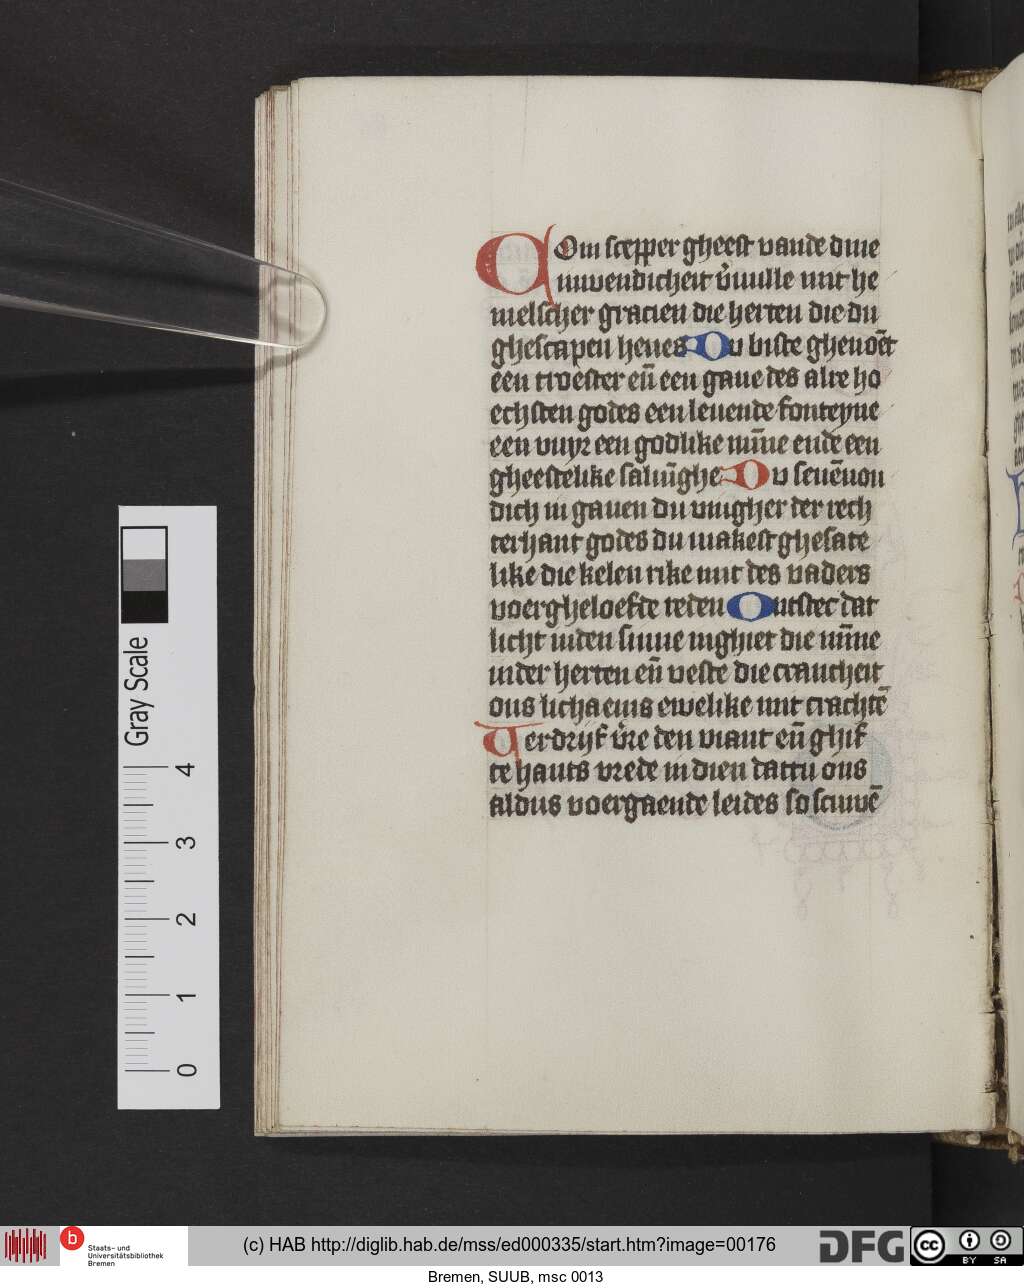 Com scepper gheest vande dine
inwendicheit v̉uulle mit he
melscher gracien die herten die du
ghescapen heues Du biste ghenoēt
een troester eñ een gaue des alre ho
echsten godes een leuende fonteyne
een vuyr een godlike miñe ende een
gheestelike saluīghe Du seuēuou
dich in gauen du vingher der rech
terhant godes du makest ghesate
like die kelen rike mit des vaders
voergheloefde reden Ontstec dat
licht inden sinne inghiet die miñe
inder herten eñ veste die crancheit
ons lichaems ewelike mit crachtē
Verdrijf v̉re den viant eñ ghif
te hants vrede in dien dattu ons
aldus voergaende leides so scuwē
Gray Scale
4
3
2
1
0
b
Staats- und
Universitätsbibliothek
Bremen
(c) HAB http://diglib.hab.de/mss/ed000335/start.htm?image=00176
DFG
cc BY SA
Bremen, SUUB, msc 0013